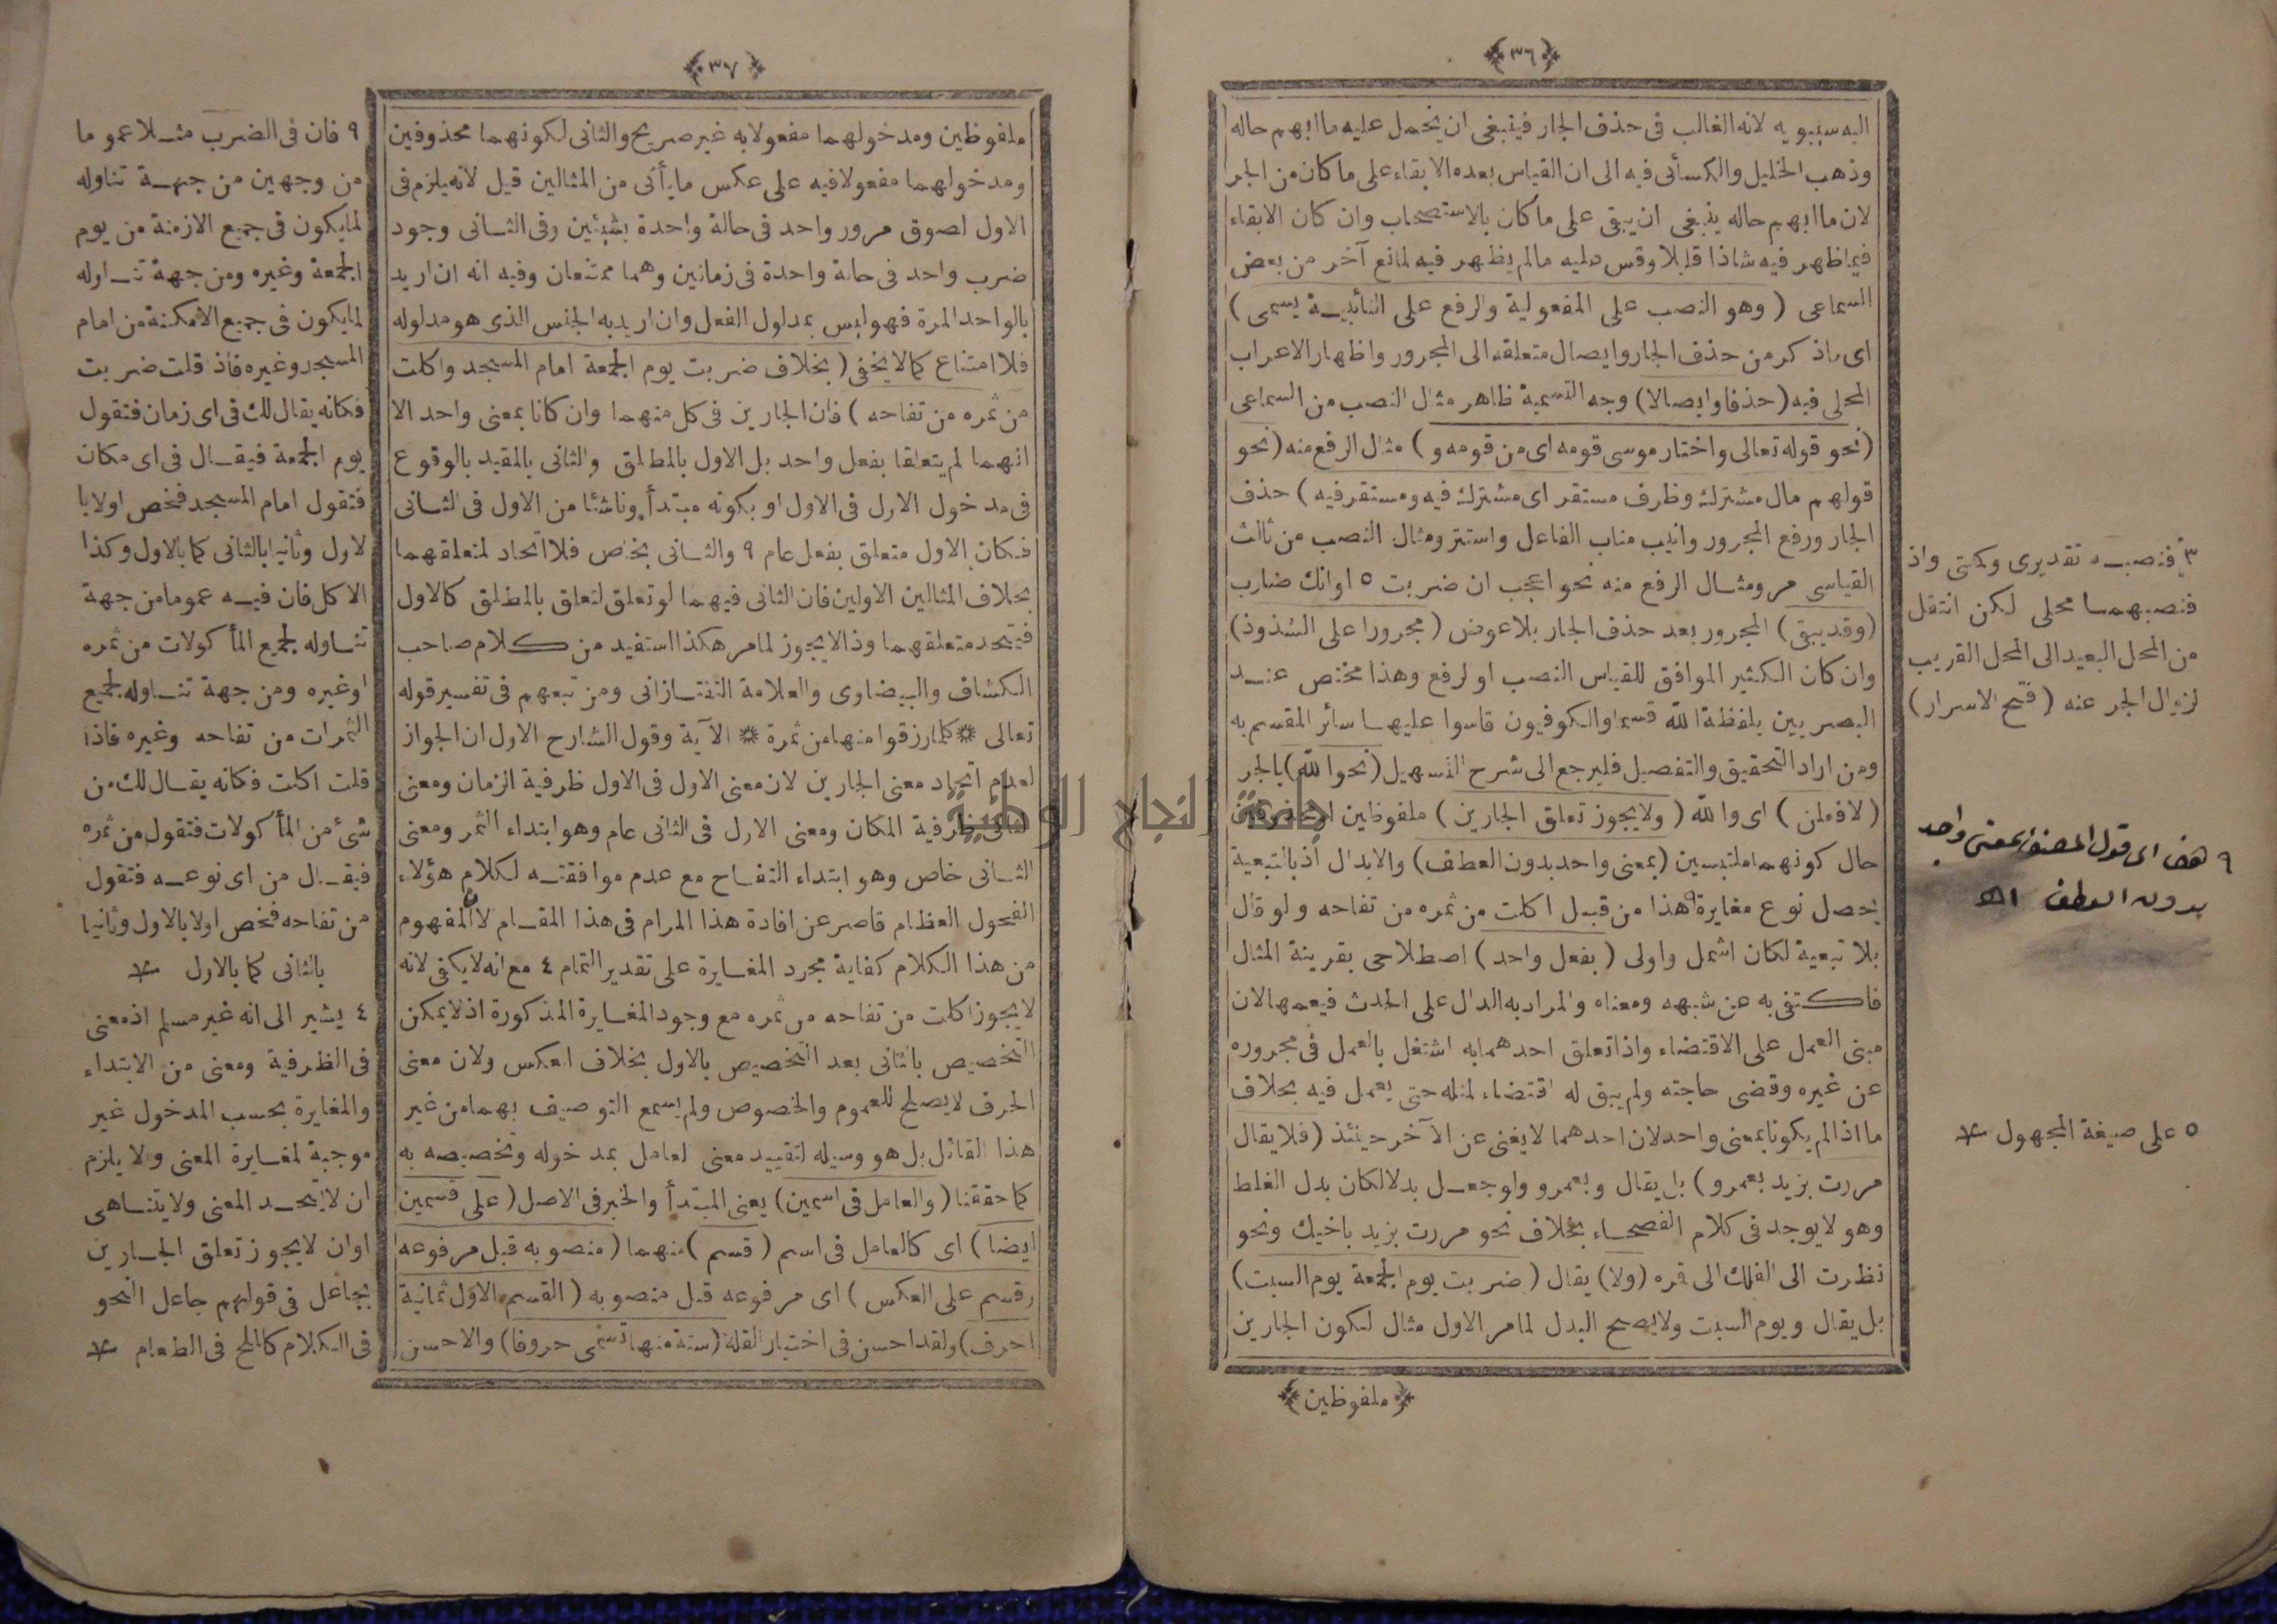 ﴿٣٦﴾
اليه سيبويه لانه الغالب فى حذف الجار فينبغى ان يحمل عليه ما ابهم حاله
وذهب الخليل والكسائى فيه الى ان القياس بعده الابقاء على ما كان من الجر
لان ما ابهم حاله ينبغى ان يبقى على ما كان بالاستصحاب وان كان الابقاء
فيما ظهر فيه شاذا قليلا وقس عليه مالم يظهر فيه لمانع آخر من بعض
السماعى ( وهو النصب على المفعولية والرفع على النائبية يسمى )
اى ماذكر من حذف الجار وايصال متعلقه الى المجرور واظهار الاعراب
المحلى فيه ( حذفا وايصالا ) وجه التسمية ظاهر مثال النصب من السماعى
( نحو قوله تعالى واختار موسى قومه اى من قومه و ) مثال الرفع منه ( نحو
قولهم مال مشترك وظرف مستقر اى مشترك فيه ومستقر فيه ) حذف
الجار ورفع المجرور وانيب مناب الفاعل واستتر ومثال النصب من ثالث
القياسى مر ومثال الرفع منه نحو اعجب ان ضربت ٥ اوانك ضارب
( وقد يبقى ) المجرور بعد حذف الجار بلا عوض ( مجرورا على الشذوذ )
وان كان الكثير الموافق للقياس النصب او لرفع وهذا مختص عند
البصريين بلفظة الله قسما والكوفيون قاسوا عليها سائر المقسم به
ومن اراد التحقيق والتفصيل فليرجع الى شرح التسهيل ( نحو الله ) بالجر
( لافعلن ) اى والله ( ولا يجوز تعلق الجارين ) ملفوظين او محذوفين
حال كونهما ملتبسين ( بمعنى واحد بدون العطف ) والابدال اذ بالتبعية
يحصل نوع مغايرة ٩ هذا من قبيل اكلت من ثمره من تفاحه ولو قال
بلا تبعية لكان اشمل واولى ( بفعل واحد ) اصطلاحى بقرينة المثال
فاكتفى به عن شبهه ومعناه والمراد به الدال على الحدث فيعمهالان
مبنى العمل على الاقتضاء واذا تعلق احدهما به اشتغل بالعمل فى مجروره
عن غيره وقضى حاجته ولم يبق له اقتضاء لمثله حتى يعمل فيه بخلاف
ما اذا لم يكونا بمعنى واحد لان احدهما لا يغنى عن الآخر حينئذ ( فلا يقال
مررت بزيد بعمرو ) بل يقال وبعمرو ولو جعل بدلا لكان بدل الغلط
وهو لا يوجد فى كلام الفصحاء بخلاف نحو مررت بزيد باخيك ونحو
نظرت الى الفلك الى قمره ( ولا ) يقال ( ضربت يوم الجمعة يوم السبت )
بل يقال ويوم السبت ولا يصح البدل لما مر الاول مثال لكون الجارين
﴿ملفوظين﴾
٣ فنصبه تقديرى وكتى واذ
فنصبهما محلى لكن انتقل
من المحل البعيد الى المحل القريب
لزوال الجر عنه ( فتح الاسرار )
٩ هذا اى قول المصنف بمعنى واحد
بدون العطف اھ
٥ على صيغة المجهول
﴿٣٧﴾
ملفوظين ومدخولهما مفعولا به غير صريح والثانى لكونهما محذوفين
ومدخولهما مفعولا فيه على عكس ما يأتى من المثالين قيل لانه يلزم فى
الاول لصوق مرور واحد فى حالة واحدة بشيئين وفى الثانى وجود
ضرب واحد فى حالة واحدة فى زمانين وهما ممتنعان وفيه انه ان اريد
بالواحد المرة فهو ليس بمدلول الفعل وان اريد به الجنس الذى هو مدلوله
فلا امتناع كما لا يخفى ( بخلاف ضربت يوم الجمعة امام المسجد واكلت
من ثمره من تفاحه ) فان الجارين فى كل منهما وان كانا بمعنى واحد الا
انهما لم يتعلقا بفعل واحد بل الاول بالمطلق والثانى بالمقيد بالوقوع
فى مدخول الاول فى الاول او بكونه مبتدأ وناشئا من الاول فى الثانى
فكان الاول متعلق بفعل عام ٩ والثانى بخاص فلا اتحاد لمتعلقهما
بخلاف المثالين الاولين فان الثانى فيهما لو تعلق لتعلق بالمطلق كالاول
فيتحد متعلقهما وذا لا يجوز لما مر هكذا استفيد من كلام صاحب
الكشاف والبيضاوى والعلامة التفتازانى ومن تبعهم فى تفسير قوله
تعالى * كلما رزقوا منها من ثمرة * الآية وقول الشارح الاول ان الجواز
لعدم اتحاد معنى الجارين لان معنى الاول فى الاول ظرفية الزمان ومعنى
الثانى ظرفية المكان ومعنى الاول فى الثانى عام وهو ابتداء الثمر ومعنى
الثانى خاص وهو ابتداء التفاح مع عدم موافقته لكلام هؤلاء
الفحول العظام قاصر عن افادة هذا المرام فى هذا المقام لان المفهوم
من هذا الكلام كفاية مجرد المغايرة على تقدير التمام ٤ مع انه لا يكفى لانه
لا يجوز اكلت من تفاحه من ثمره مع وجود المغايرة المذكورة اذ لا يمكن
التخصيص بالثانى بعد التخصيص بالاول بخلاف العكس ولان معنى
الحرف لا يصلح للعموم والخصوص ولم يسمع التوصيف بهما من غير
هذا القائل بل هو وسيله لتقييد معنى لعامل بمدخوله وتخصيصه به
كما حققنا ( والعامل فى اسمين ) يعنى المبتدأ والخبر فى الاصل ( على قسمين
ايضا ) اى كالعامل فى اسم ( قسم ) منهما ( منصوبه قبل مرفوعه
وقسم على العكس ) اى مرفوعه قبل منصوبه ( القسم الاول ثمانية
احرف ) ولقد احسن فى اختيار القلة ( ستة منها تسمى حروفا ) والاحسن
٩ فان فى الضرب مثلا عموما
من وجهين من جهة تناوله
لما يكون فى جميع الازمنة من يوم
الجمعة وغيره ومن جهة تناوله
لما يكون فى جميع الامكنة من امام
المسجد وغيره فاذ قلت ضربت
فكانه يقال لك فى اى زمان فتقول
يوم الجمعة فيقال فى اى مكان
فتقول امام المسجد فخص اولا با
لاول وثانيا بالثانى كما بالاول وكذا
الاكل فان فيه عموما من جهة
تناوله لجميع المأكولات من ثمره
اوغيره ومن جهة تناوله لجميع
الثمرات من تفاحه وغيره فاذا
قلت اكلت فكانه يقال لك من
شئ من المأكولات فتقول من ثمره
فيقال من اى نوعه فتقول
من تفاحه فخص اولا بالاول وثانيا
بالثانى كما بالاول
٤ يشير الى انه غير مسلم اذ معنى
فى الظرفية ومعنى من الابتداء
والمغايرة بحسب المدخول غير
موجبة لمغايرة المعنى والا يلزم
ان لا يتحد المعنى ولا يتناهى
اوان لا يجوز تعلق الجارين
بجاعل فى قولهم جاعل النحو
فى الكلام كالملح فى الطعام
جامعة النجاح الوطنية